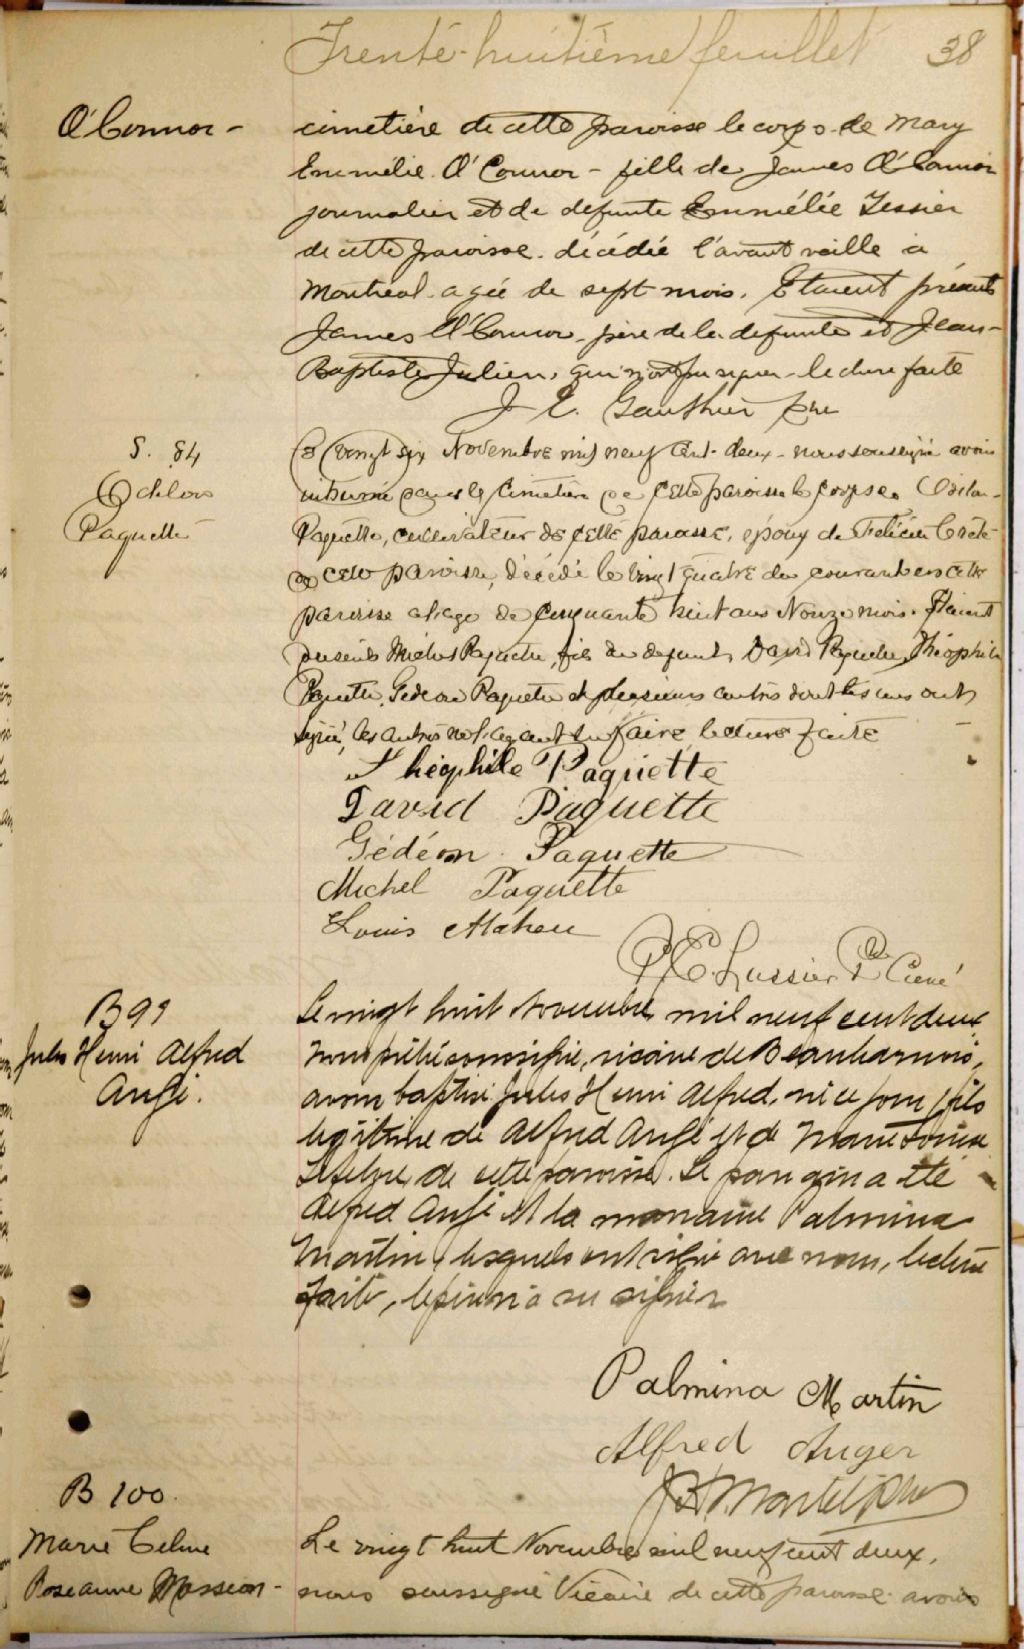 Trente-huitième feuillet 38
O'Connor -
cimetière de cette paroisse le corps de Mary
Emmélie O'Connor - fille de James O'Connor
journalier et de defunte Emmélée Tessier
de cette paroisse. décédée l'avant veille à
Montreal agée de sept mois. Etaient présents
James O'Connor, père de la defunte et Jean-
Baptiste Julien, qui n'ont pu signer - lecture faite
J. E. Gauthier ptre
S. 84
Odilon
Paquette
Le vingt six Novembre mil neuf cent deux - nous soussigné avons
inhumé dans le cimetière de cette paroisse le corps de Odilon
Paquette, cultivateur de cette paroisse, époux de Félicité
de cette paroisse, décédé le vingt quatre du courant en cette
paroisse a l'age de cinquante huit ans mois. Etaient
présents Michel Paquette, fils du defunt, David Paquette, Théophile
Paquette, Gédéon Paquette et plusieurs autres dont les uns ont
signé, les autres ne l'ayant su faire lecture faite
Théophile Paquette
David Paquette
Gédéon Paquette
Michel Paquette
Louis Maheu
P. E. Lussier Ptre Curé
B 99
Jules Henri Alfred
Augé.
Le vingt huit Novembre mil neuf cent deux
nous prêtre soussigné, vicaire de Beauharnois,
avons baptisé Jules Henri Alfred, né ce jour, fils
légitime de Alfred Augé et de Marie Louise
Lefebvre de cette paroisse. Le parrain a été
Alfred Augé et la marraine Palmina
Martin, lesquels ont signé avec nous, lecture
faite, le père n'a su signer
Palmina Martin
Alfred Auger
Martel ptre
B 100.
Marie Celine
Roseanne Masson -
Le vingt huit Novembre mil neuf cent deux,
nous soussigné Vicaire de cette paroisse avons